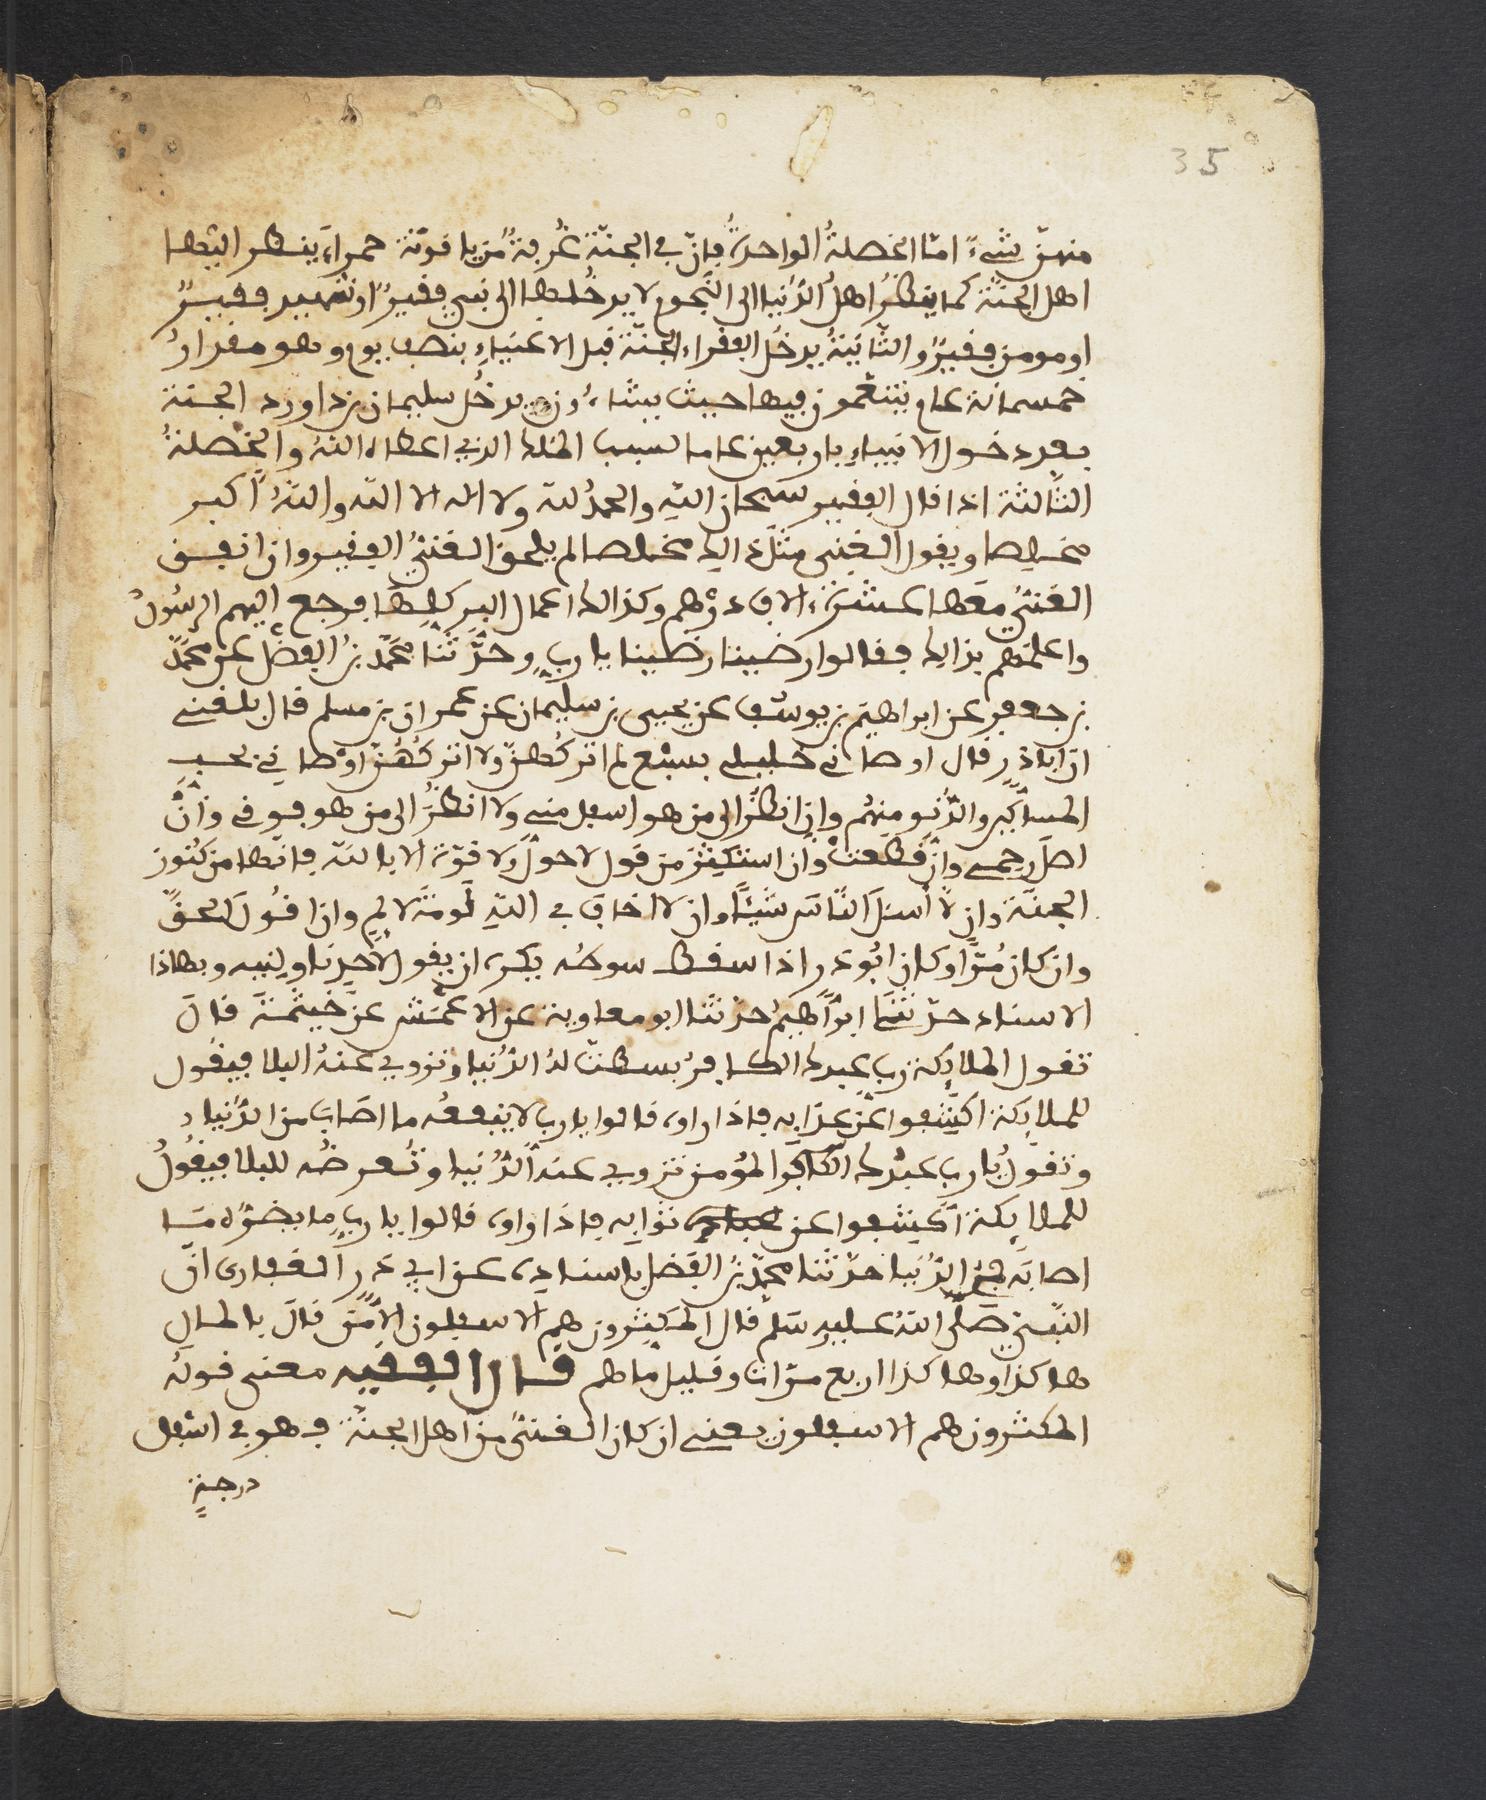 35
منهنّ شيءٌ امّا الخصلةُ الواحدةُ فإنّ في الجنّة غُرفةً من ياقوتة حمراءَ ينظر اليها
اهل الجنّة كما ينظرُ اهلُ الدّنيا الى النّجوم لا يدخُلها الى نبي فقيرٌ او شهيد فقيرٌ
او مومن فقيرٌ والثّانيةُ يدخُل الفقراء الجنّة قبل الاغنياءِ بنصف يوم وهو مقدارُ
خمسمائة عام يتنعّمون فيها حيث يشاءُون يدخُل سليمان بن داوود الجنّة
بعد دخول الانبياءِ باربعين عاما لسبب الملك الذي اعطاه اللهُ والخصلةُ
الثّالثة اذا قال الفقير سبحان اللهِ والحمدُ لله ولا اله الا الله واللهُ اكبر
مخلِصا ويقول الغني مثل ذالك مخلصا لم يلحق الغنيُّ الفقير وان انفق
الغنيُّ معها عشرة ءالاف درهم وكذالك اعمال البر كلها فرجع اليهم الرسُولُ
واعلمهم بذالك فقالوا رضينا رضينا يا ربِ وحدّثنا محمّد بنُ الفضل عن محمّد
بن جعفر عن ابراهيم بن يوسف عن يحيى بن سليمان عن عمران بن مسلم قال بلغني
انّ ابا ذر قال اوصاني خليلي بسبع لم اتركُهنّ ولا اتركُهُنّ اوصاني بحب
المساكين والدّنو منهُم وان انظرَ الى من هو اسفل مني ولا انظرُ الى من هو فوقي وانْ
اصل رحمي وانْ قطعتْ وان استكثرَ من قول لا حول ولا قوّة الا بالله فانّها من كنُوز
الجنّة وان لا أسئل النّاسَ شيئًا وان لا اخاف في اللهِ لَومَةَ لائمٍ وان اقُول الحقَّ
وان كان مُرّا وكان ابُو ذر اذا سقط سوطُه يكره ان يقول لأحدٍ ناولنيه وبهاذا
الاسناد حدّثنا ابراهيمُ حدّثنا ابو معاوية عن الاعمَش عن خيثمَة قالَ
تقول الملائكة رب عبدك الكافرُ بسطت لهُ الدُّنيا وتزوي عنهُ البلا فيقُول
للملائكة اكشفوا عن عذابه فاذا راوه قالوا يا رب لا ينفعُه ما اصَاب من الدّنيا
وتقولُ يا رب عبدُك المُؤمن تزوي عنه الدُّنيا وتُعرضُه للبلا فيقُولُ
للملائكة اكشفوا عن ثوابه فاذا راوه قالوا يا ربِ ما يضرّه مَا
اصابَه الدّنيا حدّثنا محمّد بنُ الفضل باسناده عن ابي ذر الغفارى انّ
النّبيّ صَلّى اللهُ عليه وسَلّم قال المكثرون هم الاسفلون الّا من قالَ بالمال
هاكذا وهاكذا اربع مرّات وقليل ما هم قال الفقيه معنى قولُه
المكثرون هم الاسفلون يعني ان كان الغنيُّ من اهل الجنّة فهو في اسفل
درجةٍ